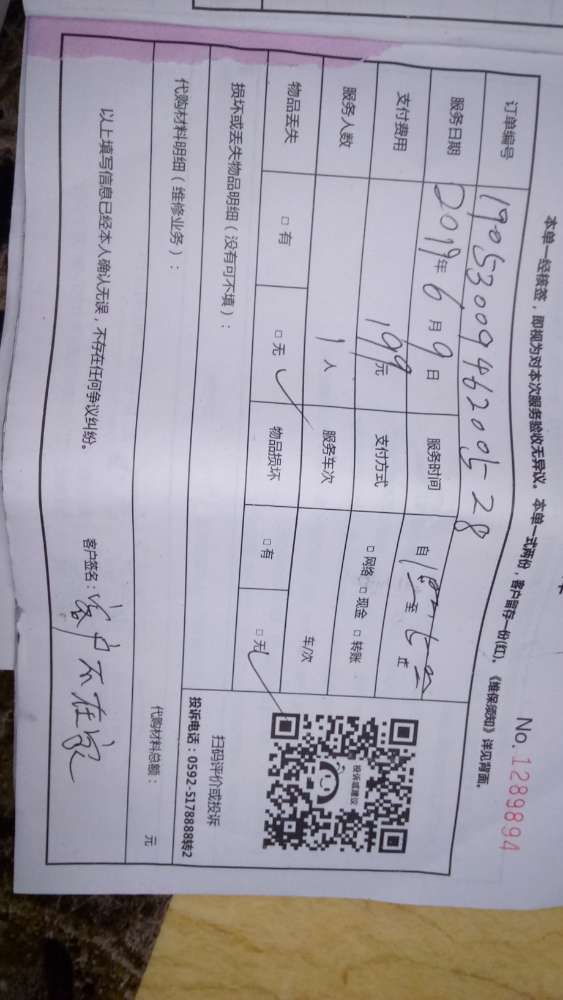 No. 1289894
本单一经核签，即视为对本次服务验收无异议。本单一式两份，客户留存一份(红)，《维保须知》详见背面。
订单编号 19053009462005-28
服务日期 2019年6月9日 服务时间 自 至
支付费用 199元 支付方式 □网络 □现金 □转账
服务人数 1人 服务车次 车/次
物品丢失 □有 □无 物品损坏 □有 □无
损坏或丢失物品明细（没有可不填）：
投诉或建议
扫码评价或投诉
投诉电话：0592-5178888转2
代购材料明细（维修业务）：
代购材料总额： 元
以上填写信息已经本人确认无误，不存在任何争议纠纷。
客户签名：客户不在家